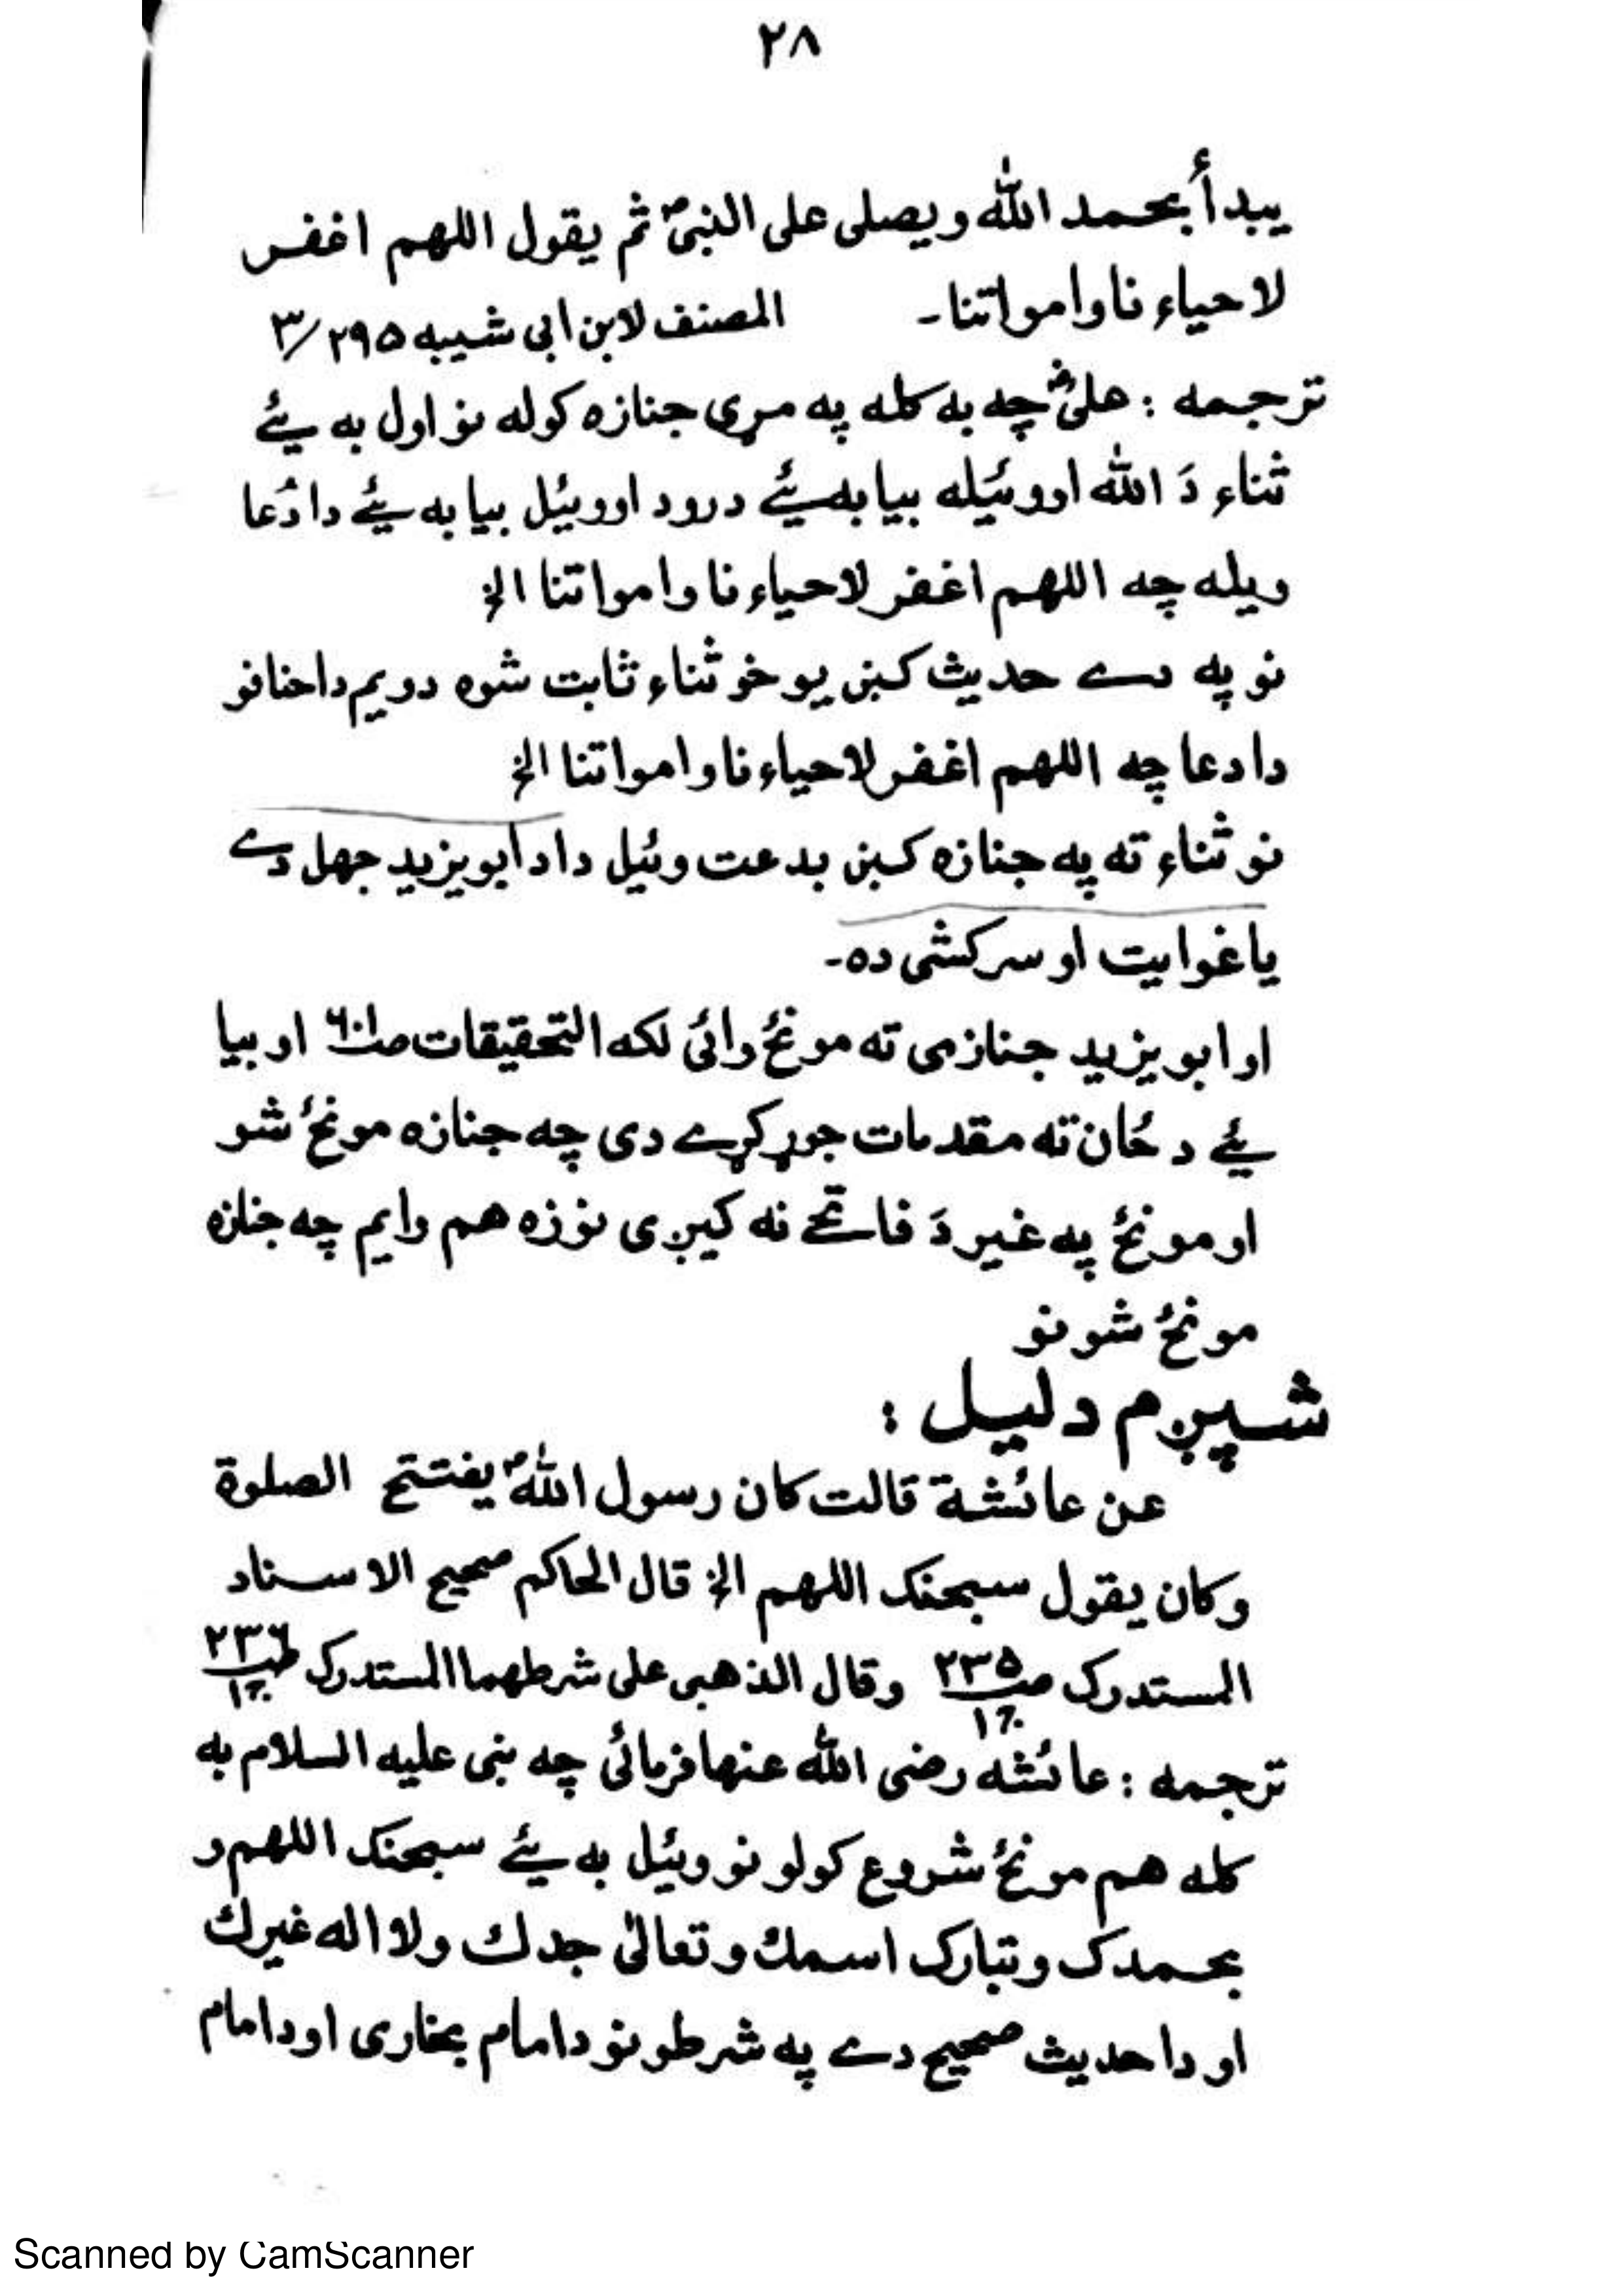 ۲۸
يبدأ بحمد الله ويصلى على النبىؐ ثم يقول اللهم اغفر
لاحياء ناوامواتنا۔ المصنف لابن ابى شيبه ۲۹۵/۳
ترجمه : علیؓ چه به کله په مړی جنازه کوله نو اول به یئے
ثناء دَ الله اووئیله بیا به یئے درود اووئیل بیا به یئے دا دُعا
ویله چه اللهم اغفر لاحیاء نا وامواتنا الخ
نو په دے حدیث کښ یو خو ثناء ثابت شوه دویم داحنافو
دا دعا چه اللهم اغفر لاحیاء نا وامواتنا الخ
نو ثناء ته په جنازه کښ بدعت وئیل دا د ابویزید جهل دے
یا غوایت او سرکشی ده۔
او ابویزید جنازی ته مونځ وائی لکه التحقیقات او بیا
یئے د ځان ته مقدمات جوړ کړے دی چه جنازه مونځ شو
او مونځ په غیر دَ فاتحے نه کیږی نو زه هم وایم چه جنازه
مونځ شو نو
شپږم دلیل :
عن عائشة قالت كان رسول اللهؐ يفتتح الصلوة
وكان يقول سبحنک اللهم الخ قال الحاكم صحيح الاسناد
المستدرک ص۲۳۵ ج۱ وقال الذهبى على شرطهما المستدرک ص۲۳۶ ج۱
ترجمه : عائشه رضی الله عنها فرمائی چه نبی علیه السلام به
کله هم مونځ شروع کولو نو وئیل به یئے سبحنک اللهم و
بحمدک وتبارک اسمك وتعالیٰ جدك ولا اله غیرك
او دا حدیث صحیح دے په شرطونو دامام بخاری او دامام
Scanned by CamScanner